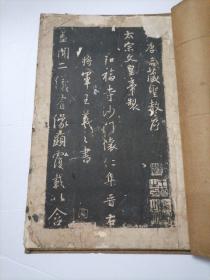 唐三藏聖教序
太宗文皇帝製
弘福寺沙門懷仁集晉右
將軍王羲之書
蓋聞二儀有像顯覆載以含